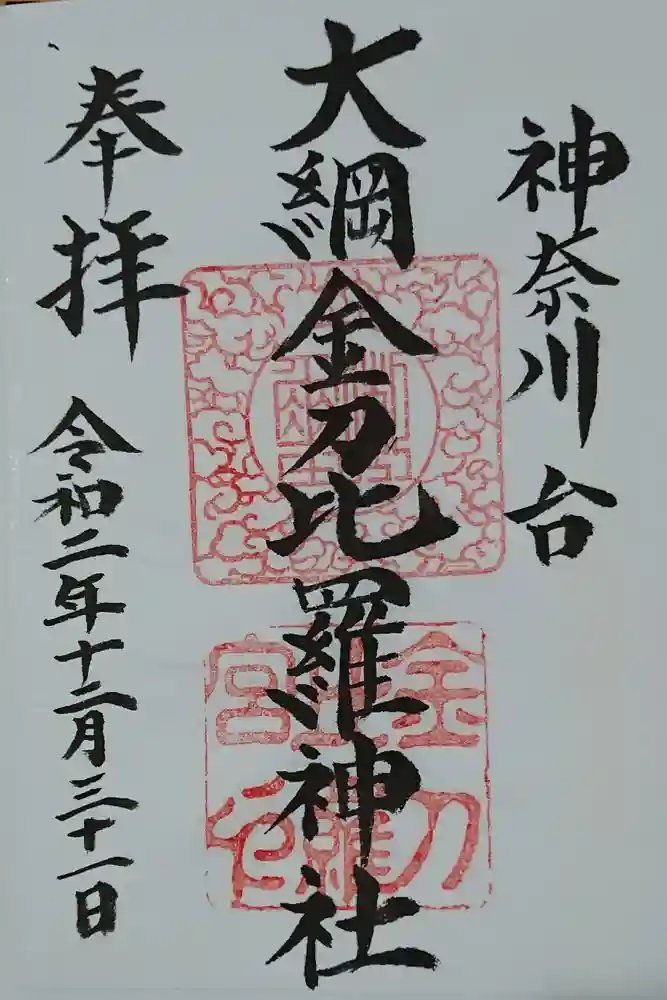 神奈川台
大綱金刀比羅神社
奉拝
令和二年十二月三十一日